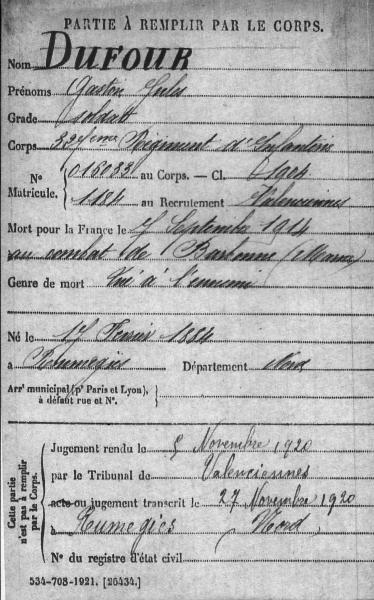 PARTIE À REMPLIR PAR LE CORPS.
Nom DUFOUR
Prénoms Gaston Jules
Grade soldat
Corps Régiment d'Infanterie
N° Matricule. 016083 au Corps. — Cl. 1904
1184 au Recrutement Valenciennes
Mort pour la France le 7 Septembre 1914
au combat de Barbonne (Marne)
Genre de mort Tué à l'ennemi
Né le 17 Février 1884
à Rumegies Département Nord
Arr^t municipal (p^r Paris et Lyon), à défaut rue et N°.
Cette partie n'est pas à remplir par le Corps.
Jugement rendu le 5 Novembre 1920
par le Tribunal de Valenciennes
acte ou jugement transcrit le 27 Novembre 1920
à Rumegies Nord
N° du registre d'état civil
534-708-1921. [26434.]